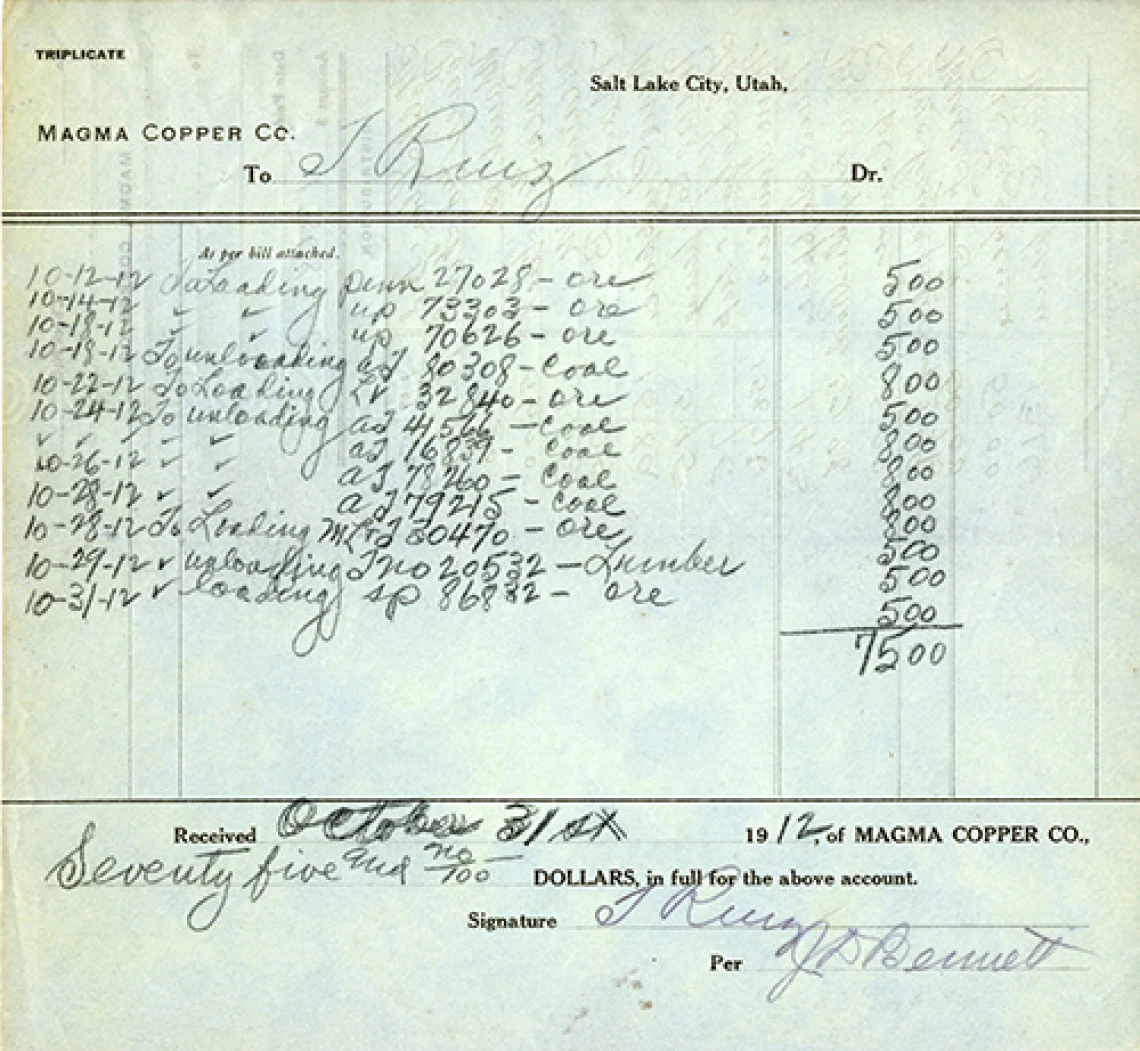 TRIPLICATE
Salt Lake City, Utah,
MAGMA COPPER CO.
To T Ruiz Dr.
As per bill attached.
10-12-12 To Loading penn 27028 - ore 500
10-14-12 " " up 73303 - ore 500
10-18-12 " " up 70626 - ore 500
10-18-12 To unloading at 80308 - Coal 800
10-22-12 To Loading Lv 32840 - ore 500
10-24-12 To unloading at 41566 - Coal 800
" " " " at 16839 - Coal 800
10-26-12 " " at 78260 - Coal 800
10-28-12 " " at 79215 - Coal 800
10-28-12 To Loading 30470 - ore 500
10-29-12 " unloading Tno 20532 - Lumber 500
10-31-12 " loading sp 86832 - ore 500
7500
Received October 31st 1912, of MAGMA COPPER CO.,
Seventy five and no/100 DOLLARS, in full for the above account.
Signature T Ruiz
Per J D Bennett